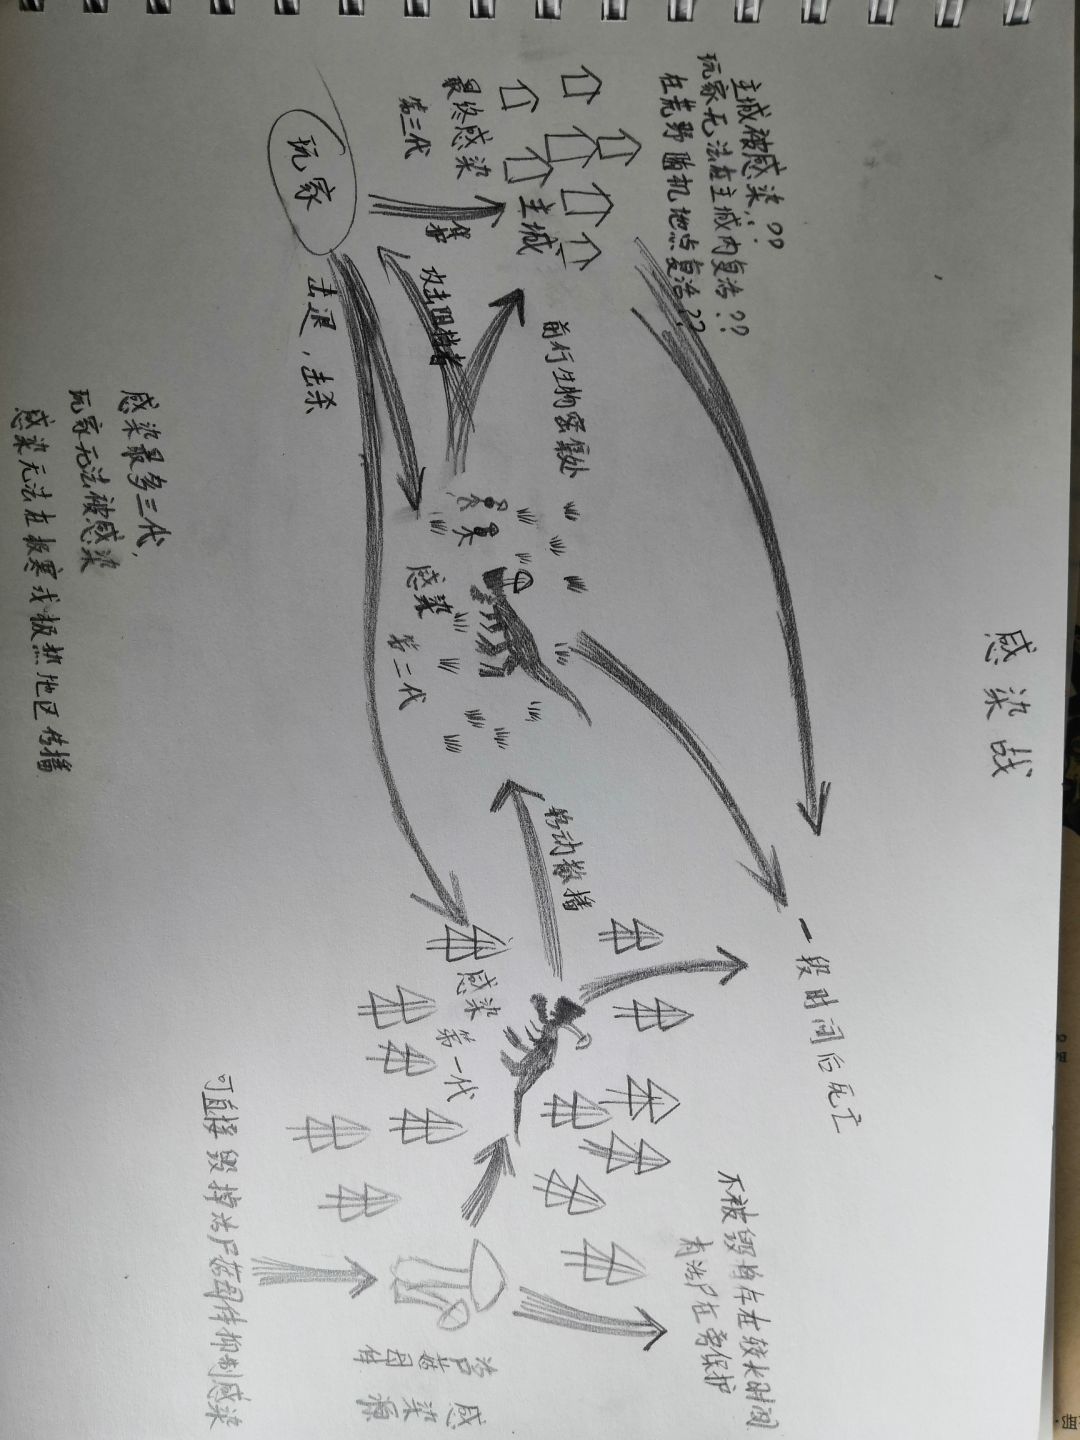 感染战
主城被感染??
玩家无法在主城内复活??
在荒野随机地点复活??
最终感染
第三代
主城
玩家
保护
攻击阻挡者
前行生物密集处
击退，击杀
感染
第二代
移动散播
感染
第一代
一段时间后死亡
感染最多三代，
玩家无法被感染
感染无法在极寒或极热地区传播
不被毁掉存在较长时间
有活尸在旁保护
可直接毁掉活尸菇母体抑制感染
活尸菇母体
感染源